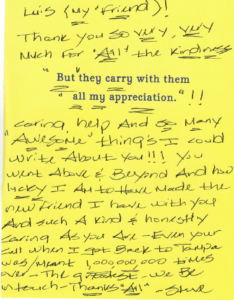 Luis (my "Friend)!
Thank you so very, very
much for "All" the kindness
"But they carry with them
all my appreciation."!!
caring, help And so many
"Awesome" thing's I could
write About you!!! you
went Above & Beyond And how
lucky I Am to have made the
new friend I have with you
And such A kind & honestly
caring As you Are - Even your
call when I got Back to Tampa
was/meant 1,000,000,000 times
over - The greatest - we Be
in touch - Thanks "All" -